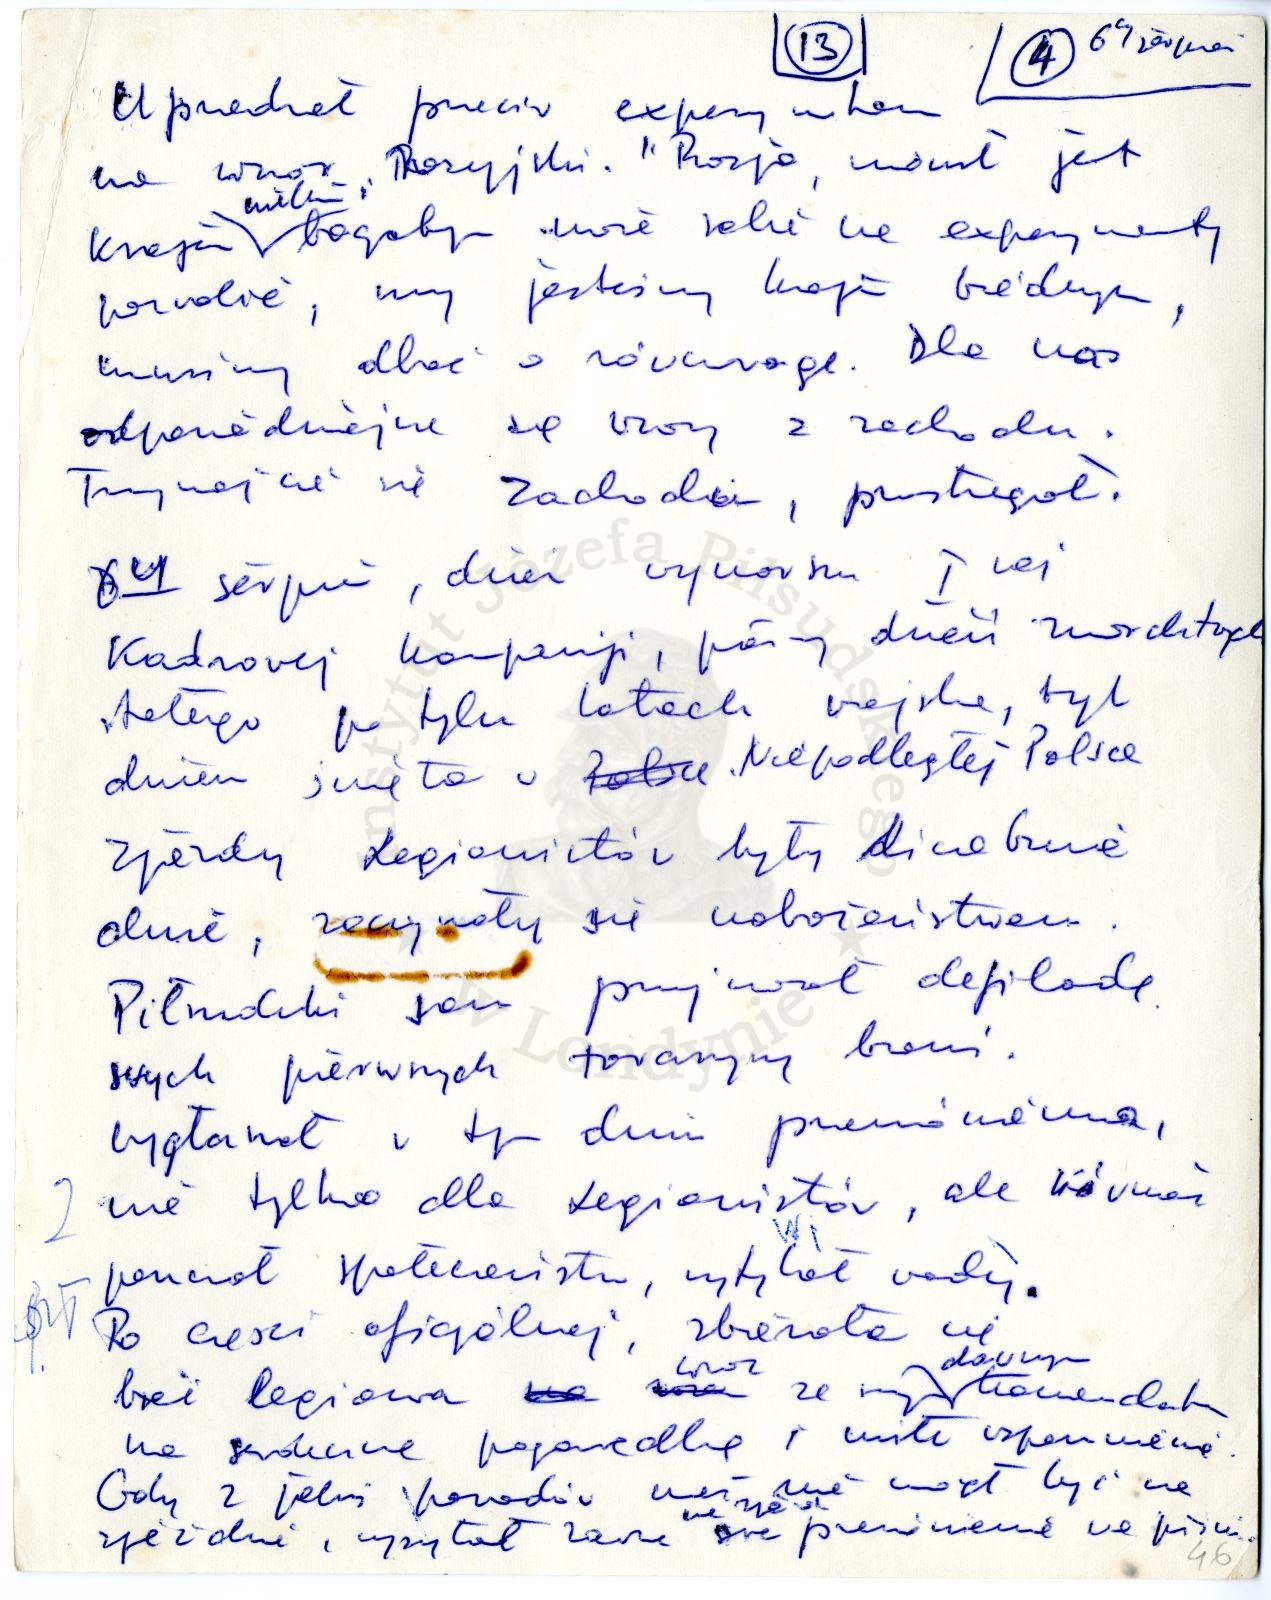 13
4 6ty sierpień
Uprzedzał przeciw eksperymentom
na wzór Rosyjski. "Rosja, mówił jest
krajem wielkim i bogatym może sobie na experymenty
pozwolić, my jesteśmy krajem biednym,
musimy dbać o równowagę. Dla nas
odpowiedniejsze są wzory z zachodu.
Trzymajcie się zachodu, przestrzegał.
6ty sierpień, dzień wymarszu I szej
Kadrowej kompanji, pierwszy dzień
po tylu latach wojska, był
dniem święta w Niepodległej Polsce
Zjazdy Legionistów były
dnie, zaczynały się nabożeństwem.
Piłsudski sam przyjmował defiladę
swych pierwszych towarzyszy broni.
Wygłaszał w tym dniu przemówienia,
nie tylko dla Legionistów, ale również
pouczał społeczeństwo, wytykał wady.
Po części oficjalnej, zbierała się
brać legionowa wraz ze swym dawnym Komendantem
na serdeczne pogawędki i miłe wspomnienia.
Gdy z jakiś powodów nie mógł być na
zjeździe, wysyłał zawsze na zjazd swe przemówienie na piśmie.
46
Instytut Józefa Piłsudskiego
w Londynie